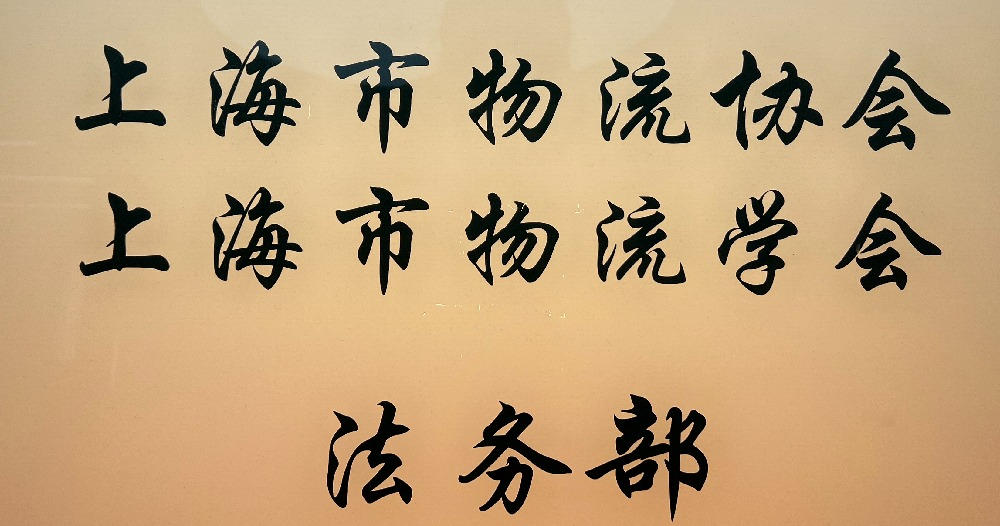 上海市物流协会
上海市物流学会
法务部